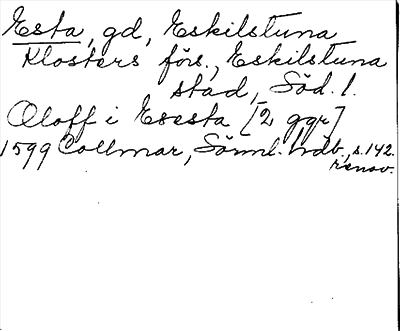 Esta, gd, Eskilstuna
Klosters förs., Eskilstuna
stad, Söd. l.
Oloff i Esesta [2 ggr]
1599 Collmar, Sörml. hdb., s. 142.
renov.